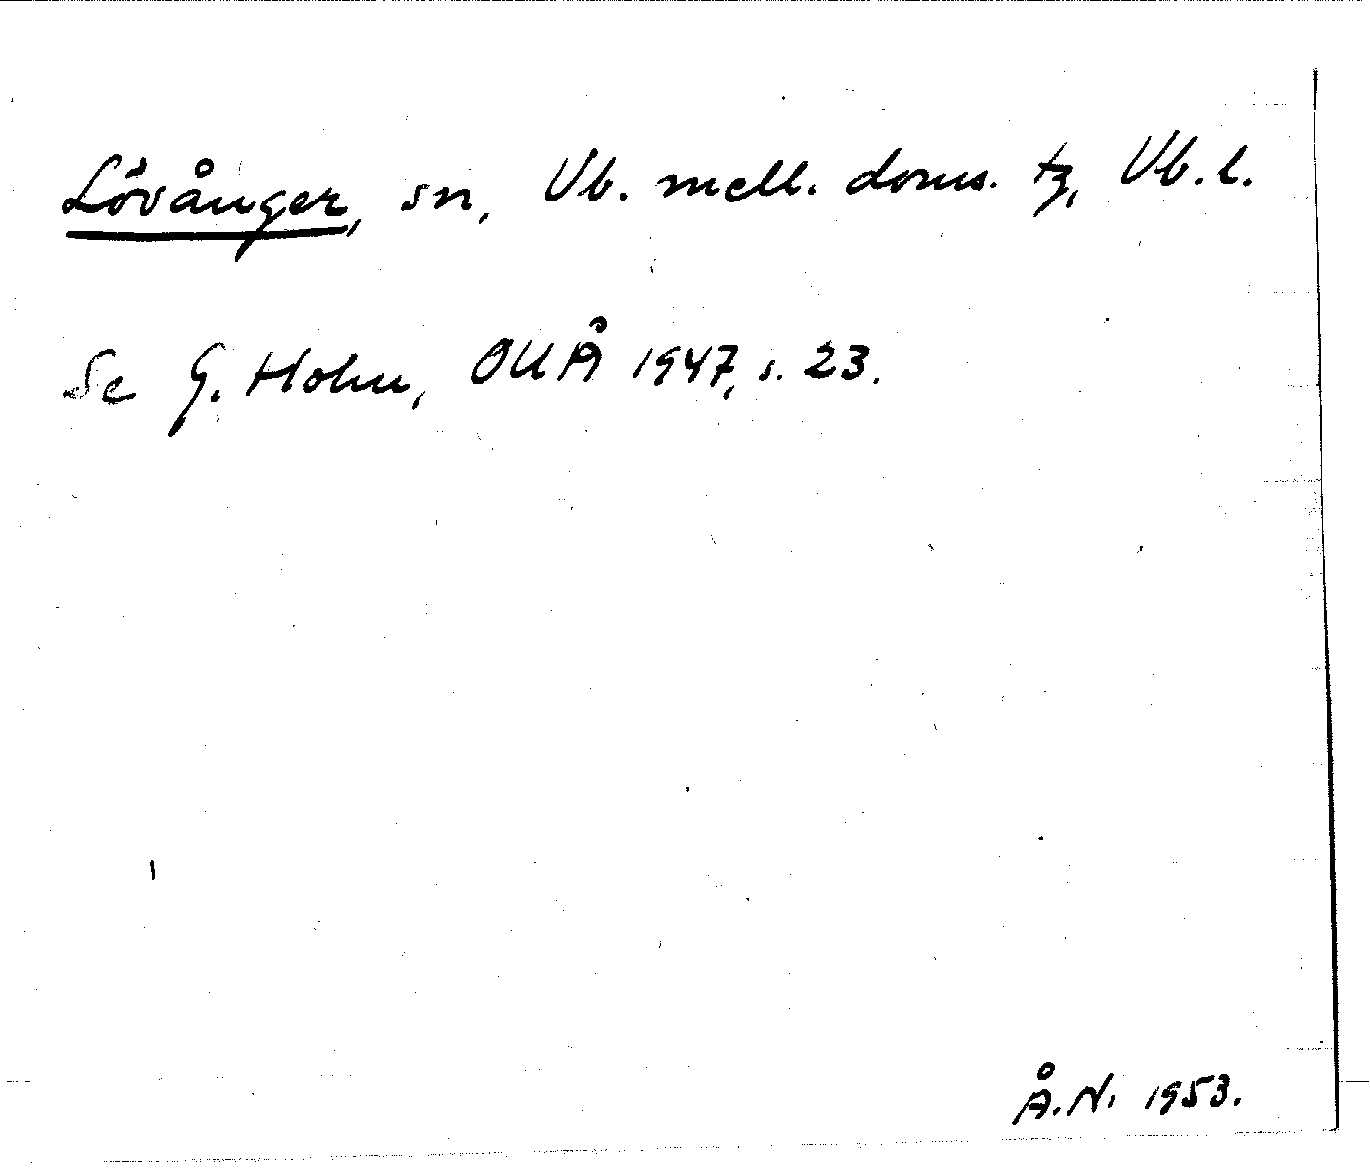 Lövånger, sn, Vb. mell. doms. tg, Vb. l.
Se G. Holm, OUÅ 1947, s. 23.
Å.N. 1953.